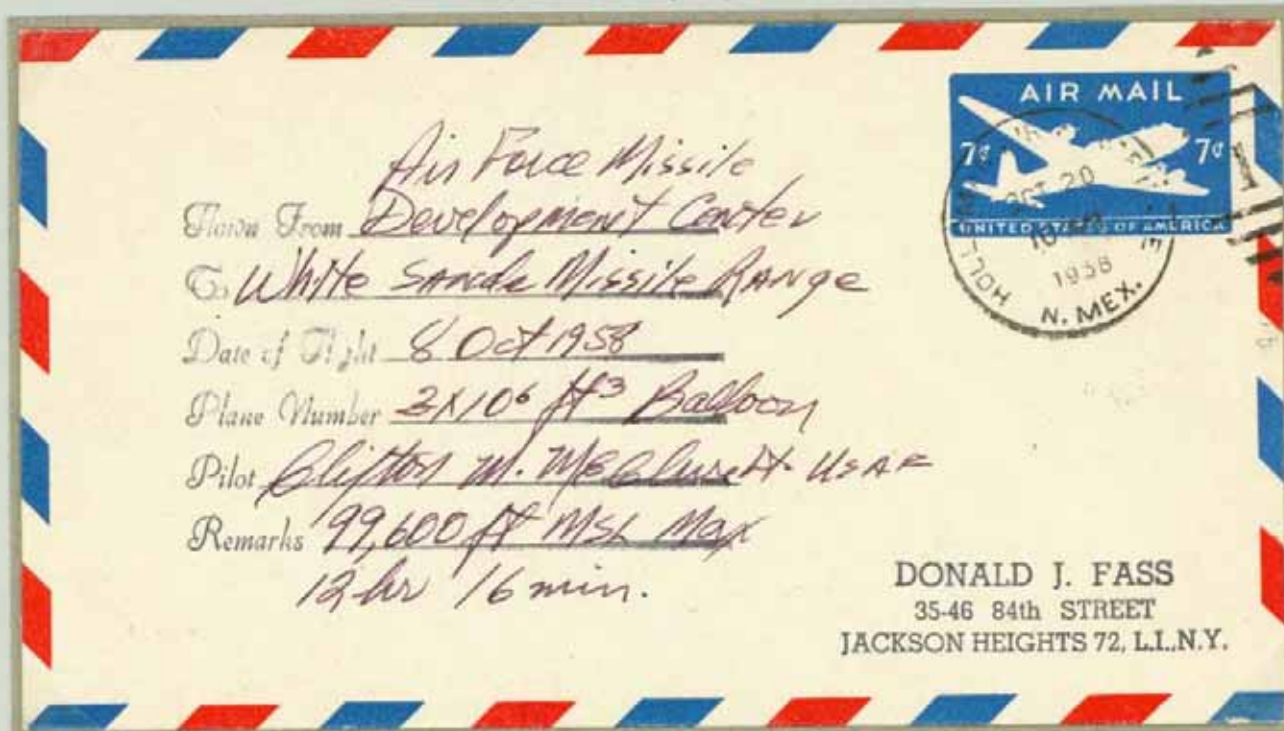 AIR MAIL
7¢ 7¢
UNITED STATES OF AMERICA
OCT 20
1958
N. MEX.
Air Force Missile
Flown From Development Center
To White Sands Missile Range
Date of Flight 8 Oct 1958
Plane Number 3X10⁶ ft³ Balloon
Pilot Clifton M. McClure USAF
Remarks 99,600 ft MSL Max
12 hr 16 min.
DONALD J. FASS
35-46 84th STREET
JACKSON HEIGHTS 72, L.I.,N.Y.